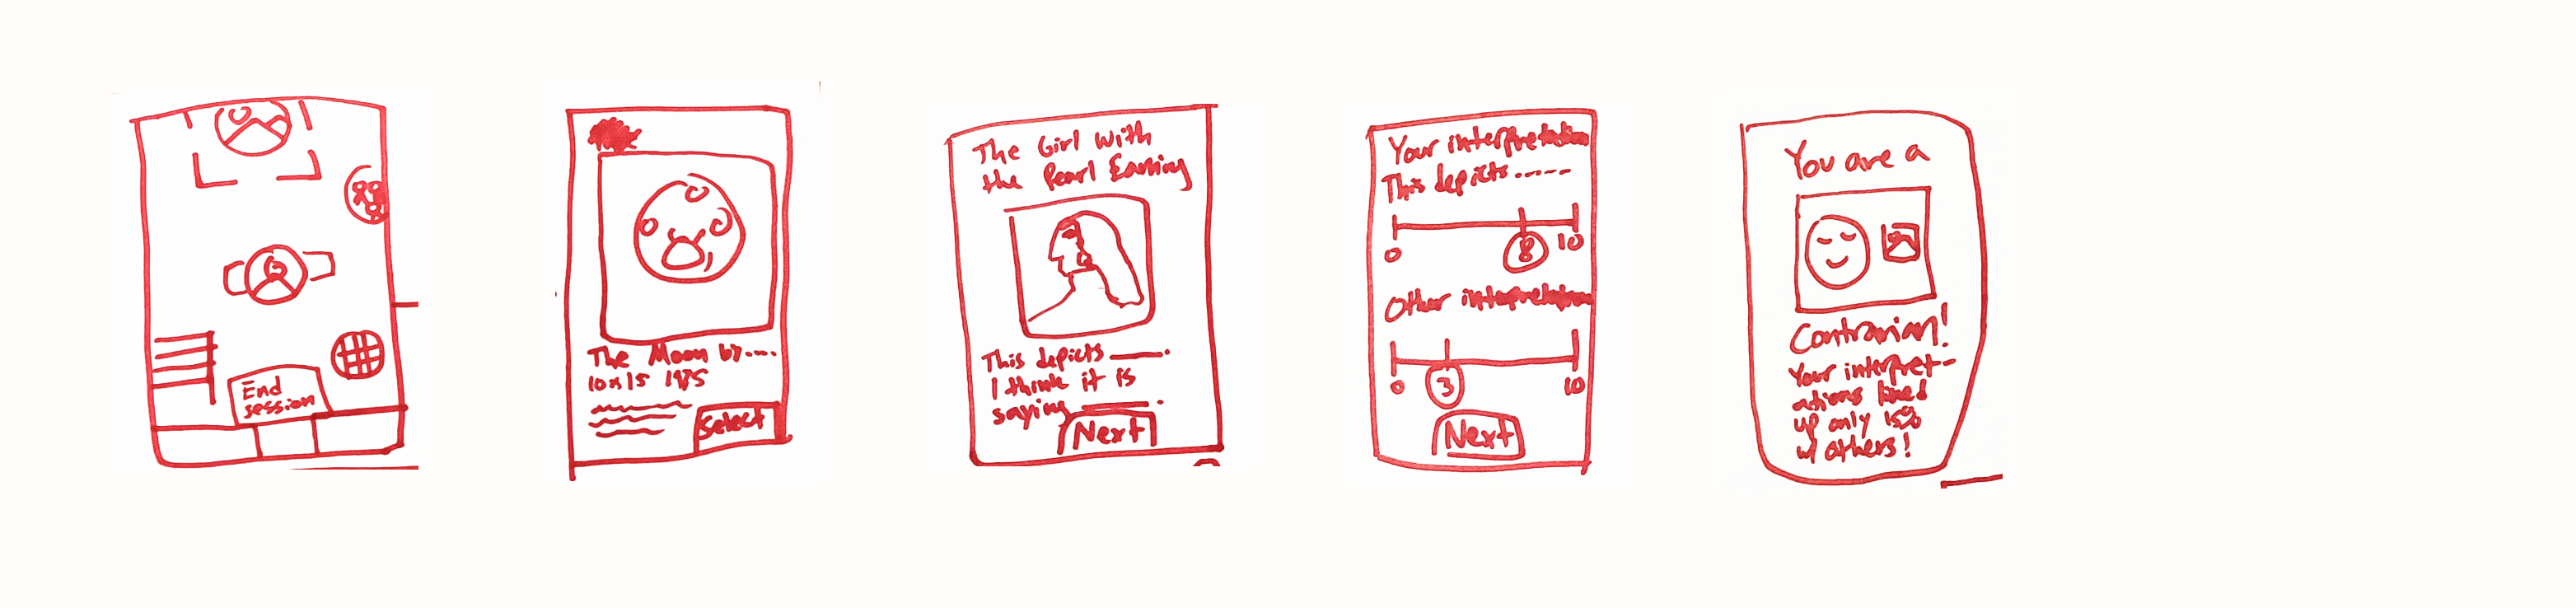 End
session
The Moon by....
10x15 1975
Select
The Girl With
the Pearl Earring
This depicts ___.
I think it is
saying ___.
Next
Your interpretation
This depicts.....
0 8 10
Other interpretation
0 3 10
Next
You are a
Contrarian!
Your interpret-
ations lined
up only 15%
w/ others!